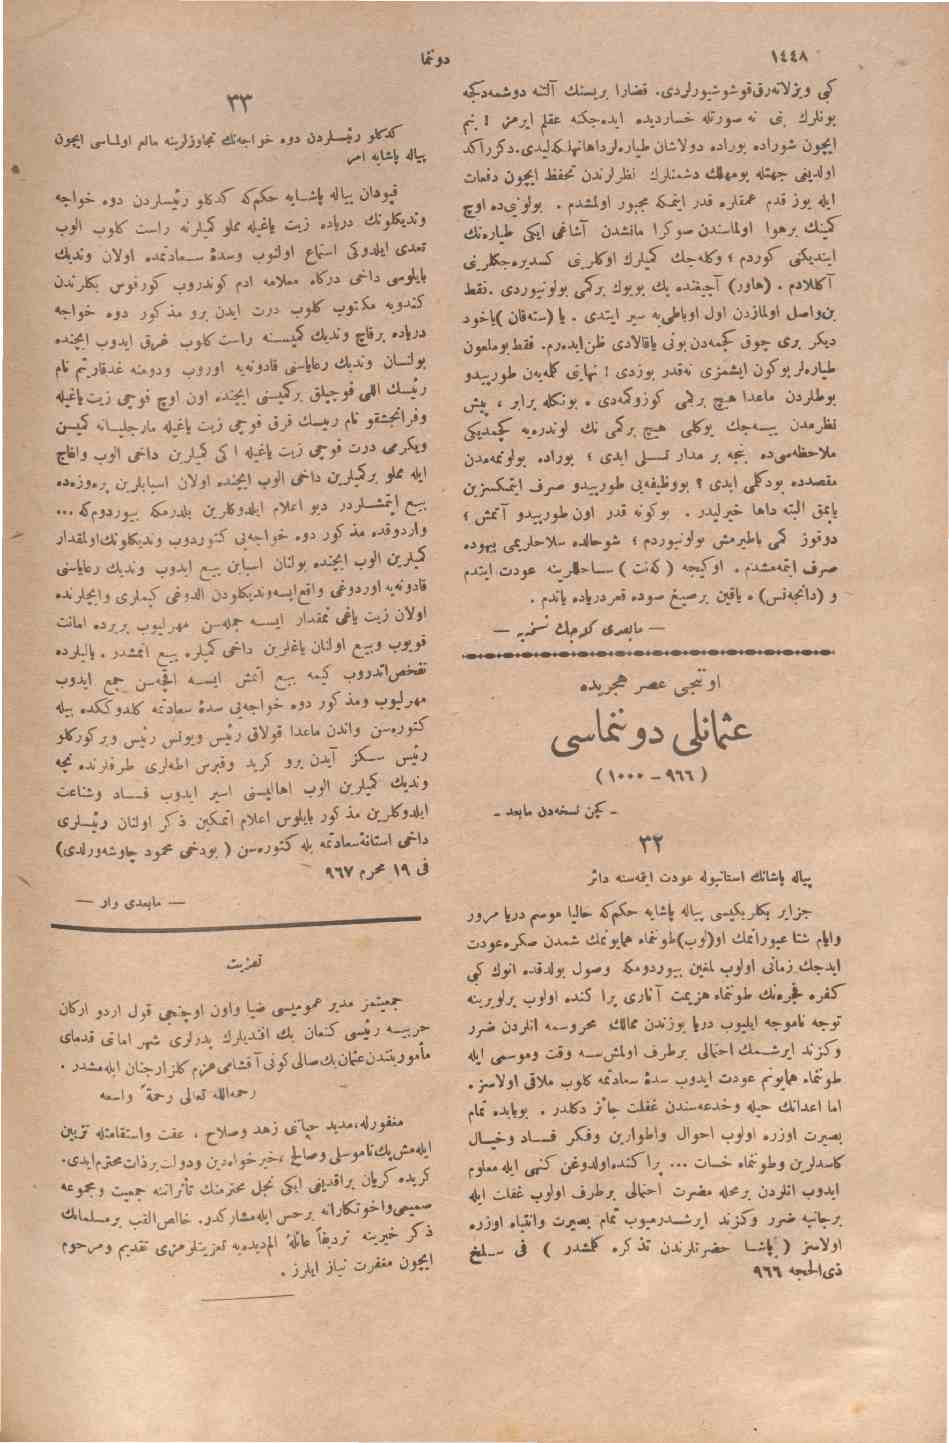 ١٤٤٨
دوننما
كبی ویزلانه‌رق قوشوشیورلردی. قضارا بریسنك آلتنه دوشمه‌دكجه
بونلرك بنی نه صورتله خساردیده ایده‌جكنه عقلم ایرمز ! بنم
ایچون شوراده بوراده دولاشان طیاره‌لر داها تهلكه‌لیدی. دكز راكد
اولدیغی جهتله بومهلك دشمنلرك نظرلرندن تحفظ ایچون دفعات
ایله یوز قدم عمقلره قدر اینمكه مجبور اولمشدم . بولونی‌ده اوچ
كمینك برهوا اولماسندن صوكرا مانشدن آشاغی ایكی طیاره‌نك
ایندیكنی كوردم ؛ وكله‌جك كمیلرك اوكلرینی كسدیره‌جكلرینی
آكلادم . (هاور) آچیغنده پك بویوك بركمی بولونیوردی . فقط
بن واصل اولمازدن اول اوباطی‌یه سیر ایتدی . یا (سته‌قان) یاخود
دیكر بری چوق كچمه‌دن بونی یاقالادی ظن ایده‌رم. فقط بوملعون
طیاره‌لر بوكون ایشمزی نه‌قدر بوزدی ! نهایتی كله‌ین طورپیدو
بوطلردن ماعدا هیچ برشی كوزوكمه‌دی . بونكله برابر ، پیش
نظرمدن ییه‌جك یوكلی هیچ بركمی نك لوندره‌یه كچمدیكی
ملاحظه‌سی‌ده بنجه بر مدار تسلی ایدی ؛ بوراده بولونمه‌مدن
مقصدده بودكلمی ایدی ؟ بووظیفه‌یی طورپیدو صرف ایتمكسزین
یاپمق البته داها خیرلیدر . بوكونه قدر اون طورپیدو آتمش ؛
دوقوز كمی باطیرمش بولونیوردم ؛ شوحالده سلاحلریمی بیهوده
صرف ایتمه‌مشدم . اوكیجه (كه‌نت) ساحللرینه عودت ایتدم
و (دانجه‌نس) ه یاقین برصیغ صوده قعر دریاده یاتدم .
— مابعدی كله‌جك نسخه‌یه —
اوننجی عصر هجریده
عثمانلی دوننماسی
(٩٦٦ – ١٠٠٠)
- كچن نسخه‌دن مابعد -
٣٢
پیاله پاشانك استانبوله عودت ایتمه‌سنه دائر
جزایر بكلربكیسی پیاله پاشایه حكم‌كه حالیا موسم دریا مرور
وایام شتا عبور ایتمك او(لوب) طونتماء همایونمك شمدن صكره عودت
ایدجك زمانی اولوب لمغین بیوردومكه وصول بولدقده انوك كبی
كفره فجره‌نك طونتماء هزیمت آثاری پراكنده اولوب برلوبرینه
توجه ناموجه ایلیوب دریا یوزندن ممالك محروسمه انلردن ضرر
وكزند ایرشمك احتمالی برطرف اولمش‌سه وقت وموسمی ایله
طونتماء همایونم عودت ایدوب سدهٔ سعادتمه كلوب ملاقی اولاسز .
اما اعدانك حیله وخدعه‌سندن غفلت جائز دكلدر . بوبابده تمام
بصیرت اوزره اولوب احوال واطوارین وفكر فساد وخیال
كاسدلرین وطونتماء خسات ... پراكنده اولدوغن كنهی ایله معلوم
ایدوب انلردن برمحله مضرت احتمالی برطرف اولوب غفلت ایله
برجانبه ضرر وكزند ایرشدرمیوب تمام بصیرت وانتباه اوزره
اولاسز (پاشا حضرتلرندن تذكره كلمشدر) فی سلخ
ذی‌الحجه ٩٦٦
٣٣
كدكلو رئیسلردن دوه خواجه‌نك تجاوزلرینه مانع اولماسی ایچون
پیاله پاشایه امر
قپودان پیاله پاشایه حكم‌كه كدكلو رئیسلردن دوه خواجه
وندیكلونك دریاده زیت یاغیله مملو كمیلرنه راست كلوب الوب
تعدی ایلدوكی استماع اولنوب وسدهٔ سعادتمده اولان وندیك
بایلوسی داخی دركاه معلامه ادم كوندروب كورفوس بكلرندن
كندویه مكتوب كلوب درت ایدن برو مذكور دوه خواجه
دریاده برقاچ وندیك كمیسنه راست كلوب غرق ایدوب ایچنده
بولنسان وندیك رعایاسنی قادونه‌یه اوروب ودومنه غدقاریتم نام
رئیسك اللی فوچیلق بركمیسنی ایچنده اون اوچ فوچی زیت یاغیله
وفرانجشقو نام رییسك قرق فوچی زیت یاغیله مارجلیانه كمیسن
ویكرمی درت فوچی زیت یاغیله اكی كمیلرین داخی الوب وافاج
ایله مملو بركمیلرین داخی الوب ایچنده اولان اسبابلرین بره‌وزه‌ده
بیع ایتمشلردر دیو اعلام ایلدوكلرین بلدرمكه بیوردوم‌كه ...
واردوقده مذكور دوه خواجه‌یی كتوردوب وندیكلونك اولمقدار
كمیلرین الوب ایچنده بولنان اسبابن بیع ایدوب وندیك رعایاسنی
قادونه‌یه اوردوغی واقع ایسه وندیكلودن الدوغی كیملری وایچلرنده
اولان زیت یاغی نمقدار ایسه جمله‌سن مهرلیوب بریرده امانت
قویوب وبیع اولنان یاغلرین داخی كمیلره بیع اتمشدر . یالیلرده
تفحص اتدروب كیمه بیع اتمش ایسه اقچه‌سن جمع ایدوب
مهرلیوب ومذكور دوه خواجه‌یی سدهٔ سعادتمه كلدوككده بیله
كتوره‌سن واندن ماعدا قولاقی رئیس ویونس رئیس وبركورك‌لو
رئیس سكز آیدن برو كرید وقبرس اطه‌لری طرفلرنده نیچه
وندیك كمیلرین الوب اهالیسنی اسیر ایدوب فساد وشناعت
ایلدوكلرین مذكور بایلوس اعلام اتمكین ذكر اولنان رئیسلری
داخی استانهٔ سعادتمه بله كتوره‌سن (بودخی محمود چاوشه‌ورلدی)
فی ١٩ محرم ٩٦٧
— مابعدی وار —
تعزیت
جمعیتمز مدیر عمومیسی ضیا واون اوچنجی قول اردو اركان
حربیه رئیسی كنعان بك افندیلرك پدرلری شهر امانتی قدمای
مأموریتندن عثمان بك صالی كونی آقشامی هزم كلزار جنان ایله‌مشدر .
رحمه‌الله تعالی رحمة واسعه
مغفورله، مدید حیاتنی زهد وصلاح ، عفت واستقامتله تزیین
ایله‌مش پك ناموسلی وصالح ، خیرخواه دین ودولت برذات محترم ایدی.
كریده كریان براقدیغی ایكی نجل محترمنك تأثراتنه جمعیت ومجموعه
صمیمی واخوتكارانه برحس ایله مشاركدر. خالص القلب برمسلمانك
ذكر خیرینه تردیفاً عائلهٔ المدیده‌یه تعزیتلرمزی تقدیم ومرحوم
ایچون مغفرت نیاز ایلرز .